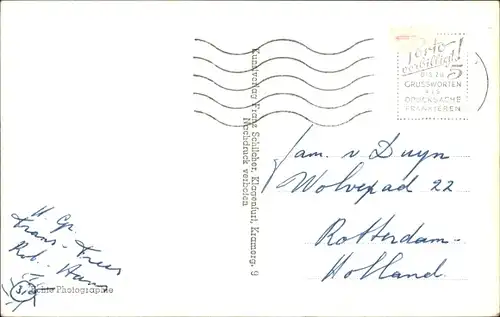 Porto
verbilligt!
BIS ZU 5
GRUSSWORTEN
ALS
DRUCKSACHE
FRANKIEREN
Kunstverlag Franz Schilcher, Klagenfurt, Kramerg. 9
Nachdruck verboten
Fam. v Duyn
Wolvepad 22
Rotterdam-
Holland.
H. Gr.
Frans - Trees
Rob. Hans
Echte Photographie